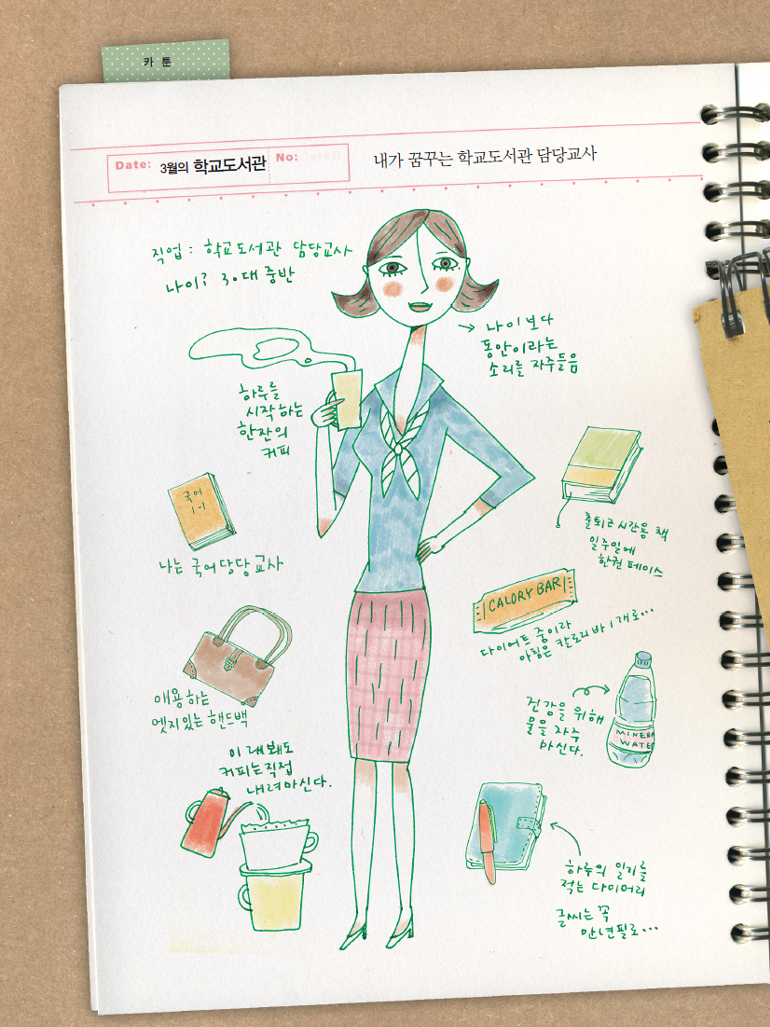 카 툰
Date: 3월의 학교도서관 No:
내가 꿈꾸는 학교도서관 담당교사
직업 : 학교도서관 담당교사
나이? 30대 중반
→ 나이보다
동안이라는
소리를 자주들음
하루를
시작하는
한잔의
커피
국어
1-1
나는 국어담당교사
출퇴근시간용 책
일주일에
한권 페이스
CALORY BAR
다이어트 중이라
아침은 칼로리바 1개로...
애용하는
엣지있는 핸드백
건강을 위해
물을 자주
마신다.
MINERA
WATE
이래봬도
커피는직접
내려마신다.
하루의 일기를
적는 다이어리
글씨는 꼭
만년필로...